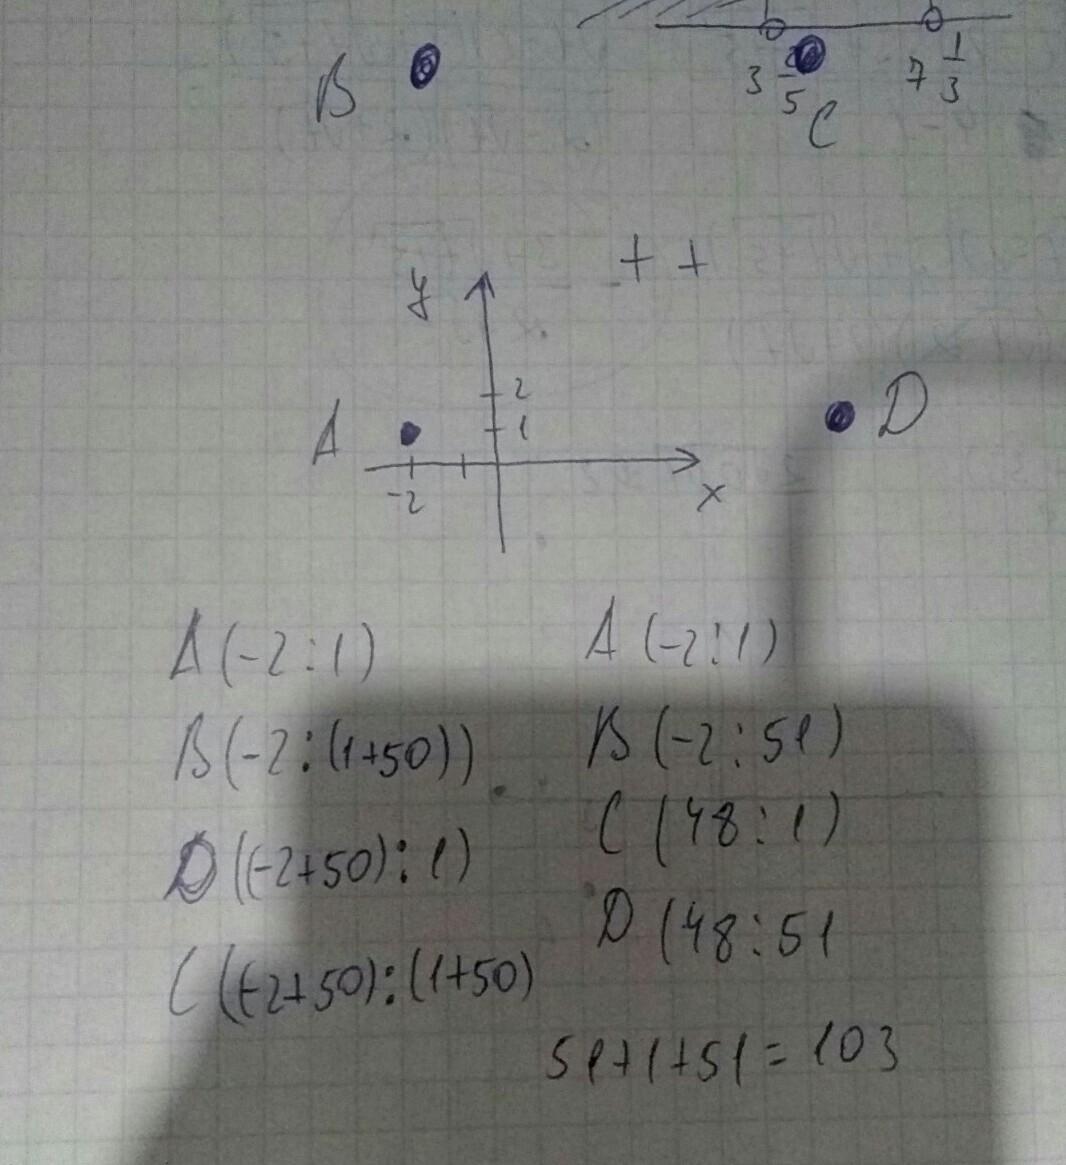 B
3 2/5 C 7 1/3
+ +
y
2
1
A
D
-2
x
A (-2 : 1) A (-2 : 1)
B (-2 : (1+50)) B (-2 : 51)
D ((-2+50) : 1) C (48 : 1)
C ((-2+50) : (1+50) D (48 : 51
51+1+51 = 103